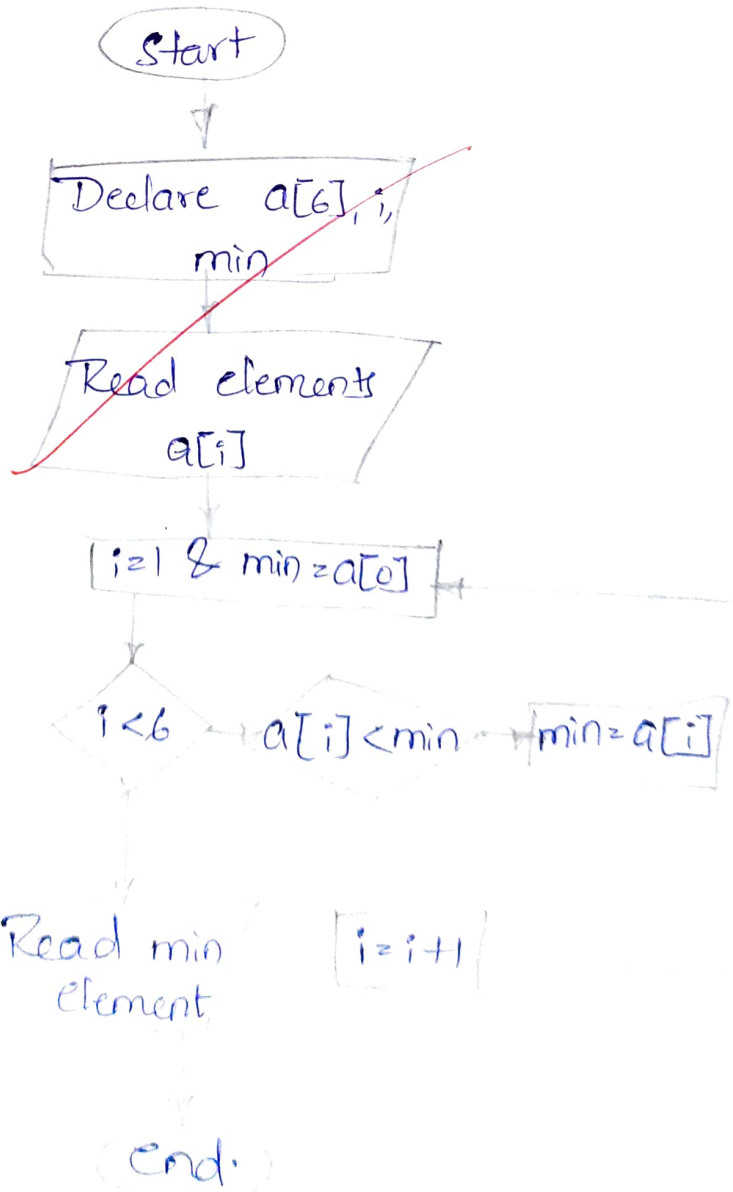 Start
Declare a[6], i,
min
Read elements
a[i]
i=1 & min=a[0]
i<6
a[i]<min
min=a[i]
Read min
element
i=i+1
end.